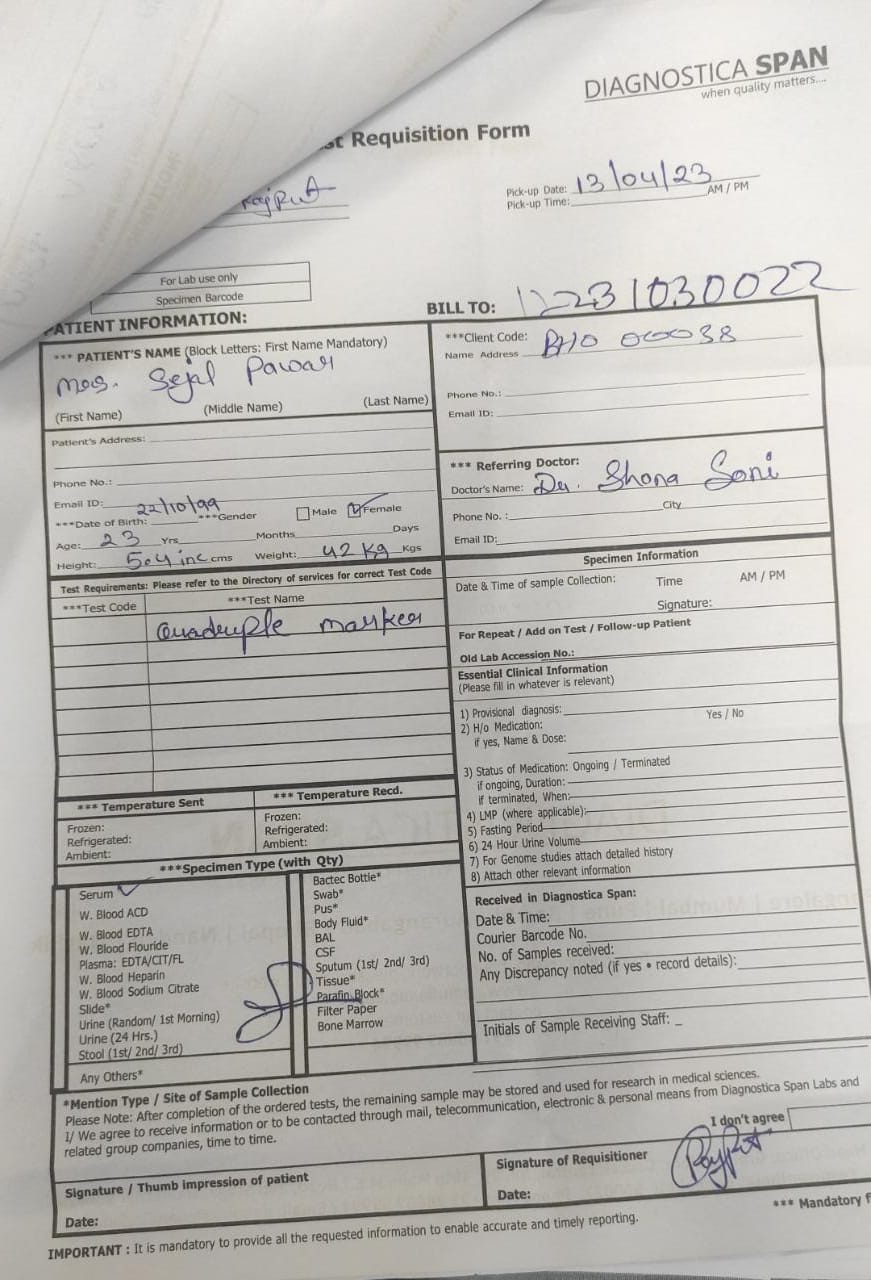 DIAGNOSTICA SPAN
when quality matters....
st Requisition Form
Rajput
Pick-up Date: 13/04/23
Pick-up Time: AM / PM
For Lab use only
Specimen Barcode
PATIENT INFORMATION:
BILL TO: 12231030022
*** PATIENT'S NAME (Block Letters: First Name Mandatory)
Mrs. Sejal Pawar
(First Name) (Middle Name) (Last Name)
***Client Code: BHO 00038
Name Address
Phone No.:
Email ID:
Patient's Address:
Phone No.:
Email ID:
***Date of Birth: 22/10/99 ***Gender Male Female
Age: 23 Yrs Months Days
Height: 5.4 inc cms Weight: 42 Kg Kgs
*** Referring Doctor:
Doctor's Name: Dr. Shona Soni
Phone No. : City
Email ID:
Test Requirements: Please refer to the Directory of services for correct Test Code
***Test Code ***Test Name
Quadruple marker
Specimen Information
Date & Time of sample Collection: Time AM / PM
Signature:
For Repeat / Add on Test / Follow-up Patient
Old Lab Accession No.:
Essential Clinical Information
(Please fill in whatever is relevant)
1) Provisional diagnosis:
2) H/o Medication: Yes / No
if yes, Name & Dose:
3) Status of Medication: Ongoing / Terminated
if ongoing, Duration:
if terminated, When:
4) LMP (where applicable):
5) Fasting Period
6) 24 Hour Urine Volume
7) For Genome studies attach detailed history
8) Attach other relevant information
*** Temperature Sent *** Temperature Recd.
Frozen: Frozen:
Refrigerated: Refrigerated:
Ambient: Ambient:
***Specimen Type (with Qty)
Serum
W. Blood ACD
W. Blood EDTA
W. Blood Flouride
Plasma: EDTA/CIT/FL
W. Blood Heparin
W. Blood Sodium Citrate
Slide*
Urine (Random/ 1st Morning)
Urine (24 Hrs.)
Stool (1st/ 2nd/ 3rd)
Any Others*
Bactec Bottle*
Swab*
Pus*
Body Fluid*
BAL
CSF
Sputum (1st/ 2nd/ 3rd)
Tissue*
Parafin Block*
Filter Paper
Bone Marrow
Received in Diagnostica Span:
Date & Time:
Courier Barcode No.
No. of Samples received:
Any Discrepancy noted (if yes • record details):
Initials of Sample Receiving Staff:
*Mention Type / Site of Sample Collection
Please Note: After completion of the ordered tests, the remaining sample may be stored and used for research in medical sciences.
I/ We agree to receive information or to be contacted through mail, telecommunication, electronic & personal means from Diagnostica Span Labs and
related group companies, time to time.
I don't agree
Signature / Thumb impression of patient
Date:
Signature of Requisitioner Rajput
Date:
*** Mandatory f
IMPORTANT : It is mandatory to provide all the requested information to enable accurate and timely reporting.